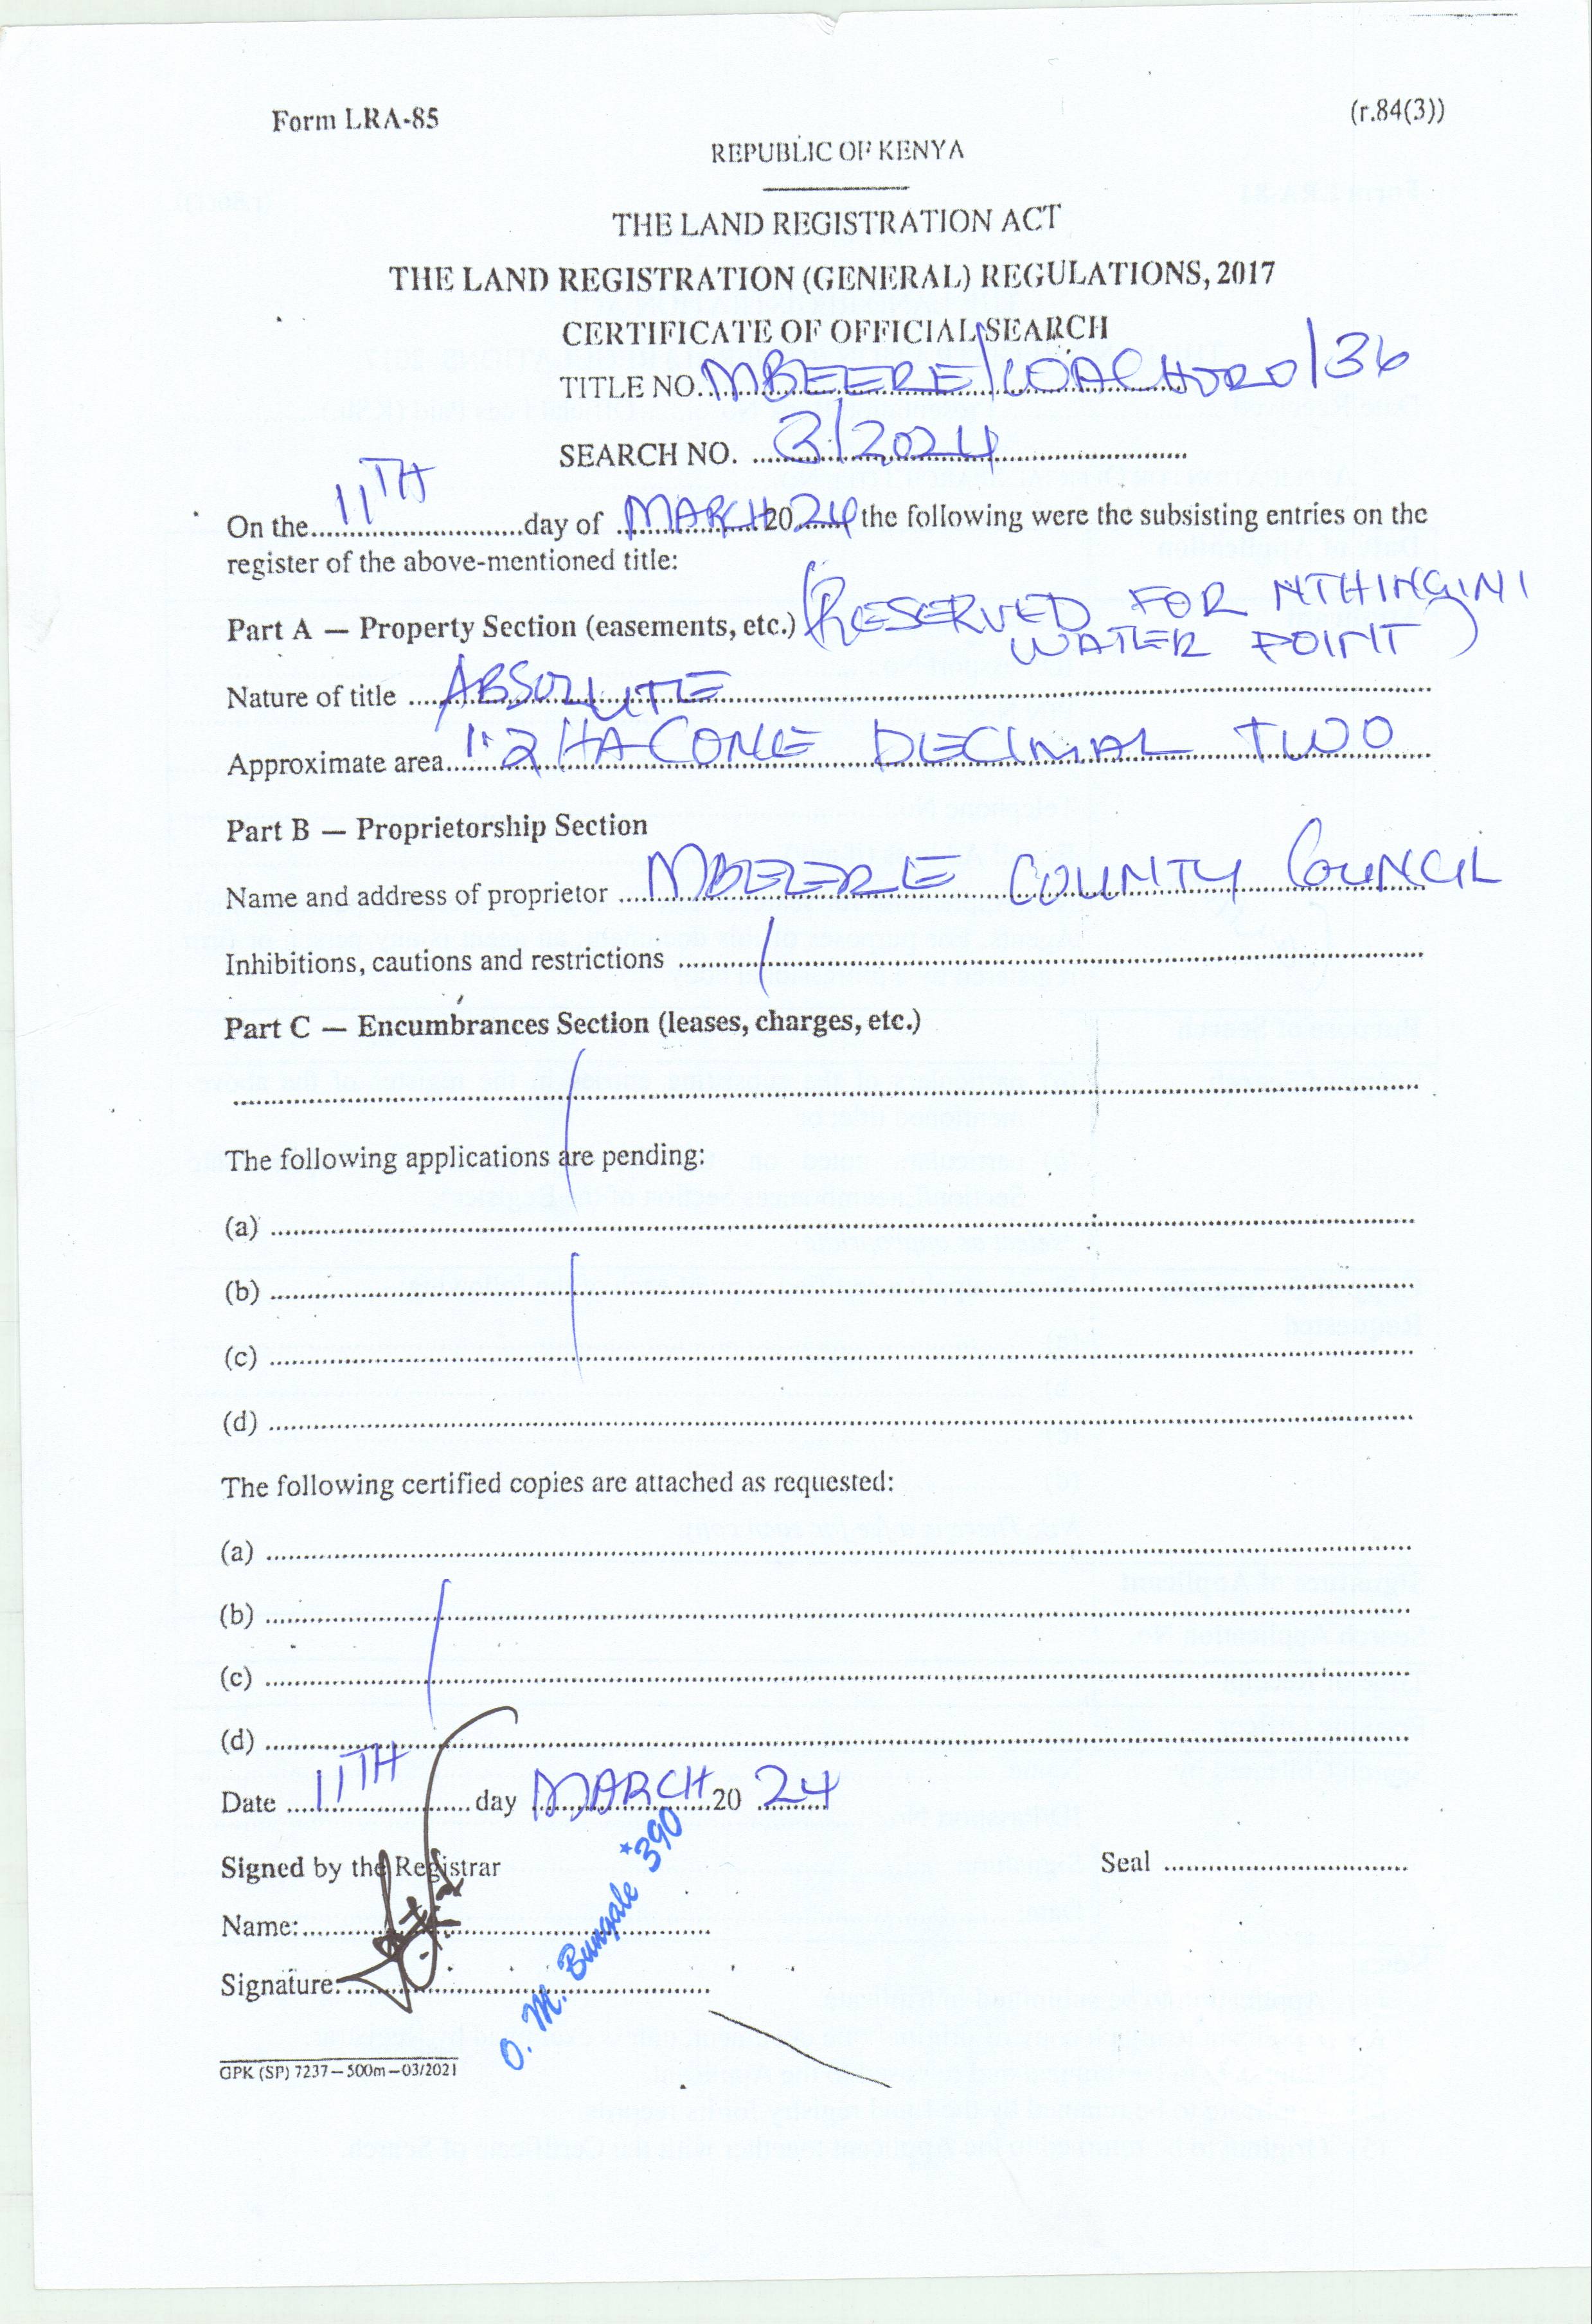 Form LRA-85
(r.84(3))
REPUBLIC OF KENYA
THE LAND REGISTRATION ACT
THE LAND REGISTRATION (GENERAL) REGULATIONS, 2017
CERTIFICATE OF OFFICIAL SEARCH
TITLE NO. MBEERE/WACHORO/36
SEARCH NO. 3/2024
On the 11TH day of MARCH 2024 the following were the subsisting entries on the
register of the above-mentioned title:
Part A — Property Section (easements, etc.) (RESERVED FOR NTHINGINI
WATER POINT)
Nature of title ABSOLUTE
Approximate area 1.2 HA (ONE DECIMAL TWO
Part B — Proprietorship Section
Name and address of proprietor MBEERE COUNTY COUNCIL
Inhibitions, cautions and restrictions
Part C — Encumbrances Section (leases, charges, etc.)
The following applications are pending:
(a)
(b)
(c)
(d)
The following certified copies are attached as requested:
(a)
(b)
(c)
(d)
Date 11TH day MARCH 20 24
Signed by the Registrar
Seal
Name:
Signature:
O. M. Bungale *390
GPK (SP) 7237—500m—03/2021